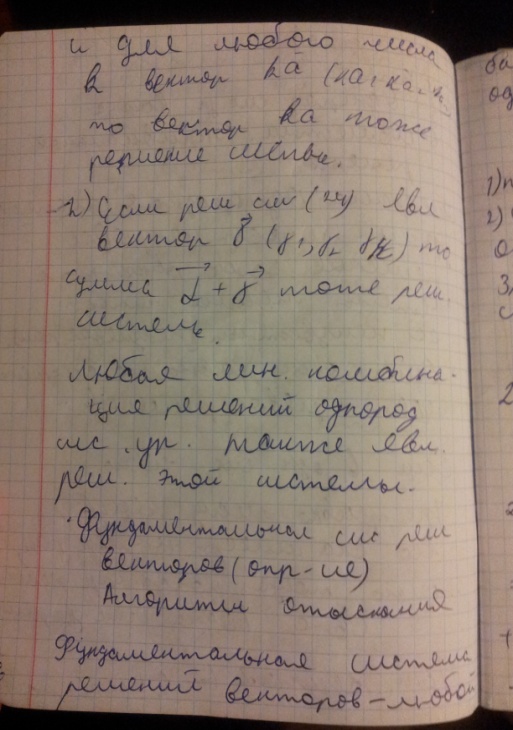 и для любого числа
k вектор kā (ka₁, ka₂, k
то вектор ka тоже
решение систы.
2) Если реш сис (24) явл
вектор γ⃗ (γ₁, γ₂ γk) то
сумма α⃗ + γ⃗ тоже реш.
системы.
Любая лин. комбина-
ция решений однород
сис. ур. также явл.
реш. этой системы.
Фундаментальная сис реш
векторов (опр-ие)
Алгоритм отыскания
Фундаментальная система
решений векторов - любой
1)
2)